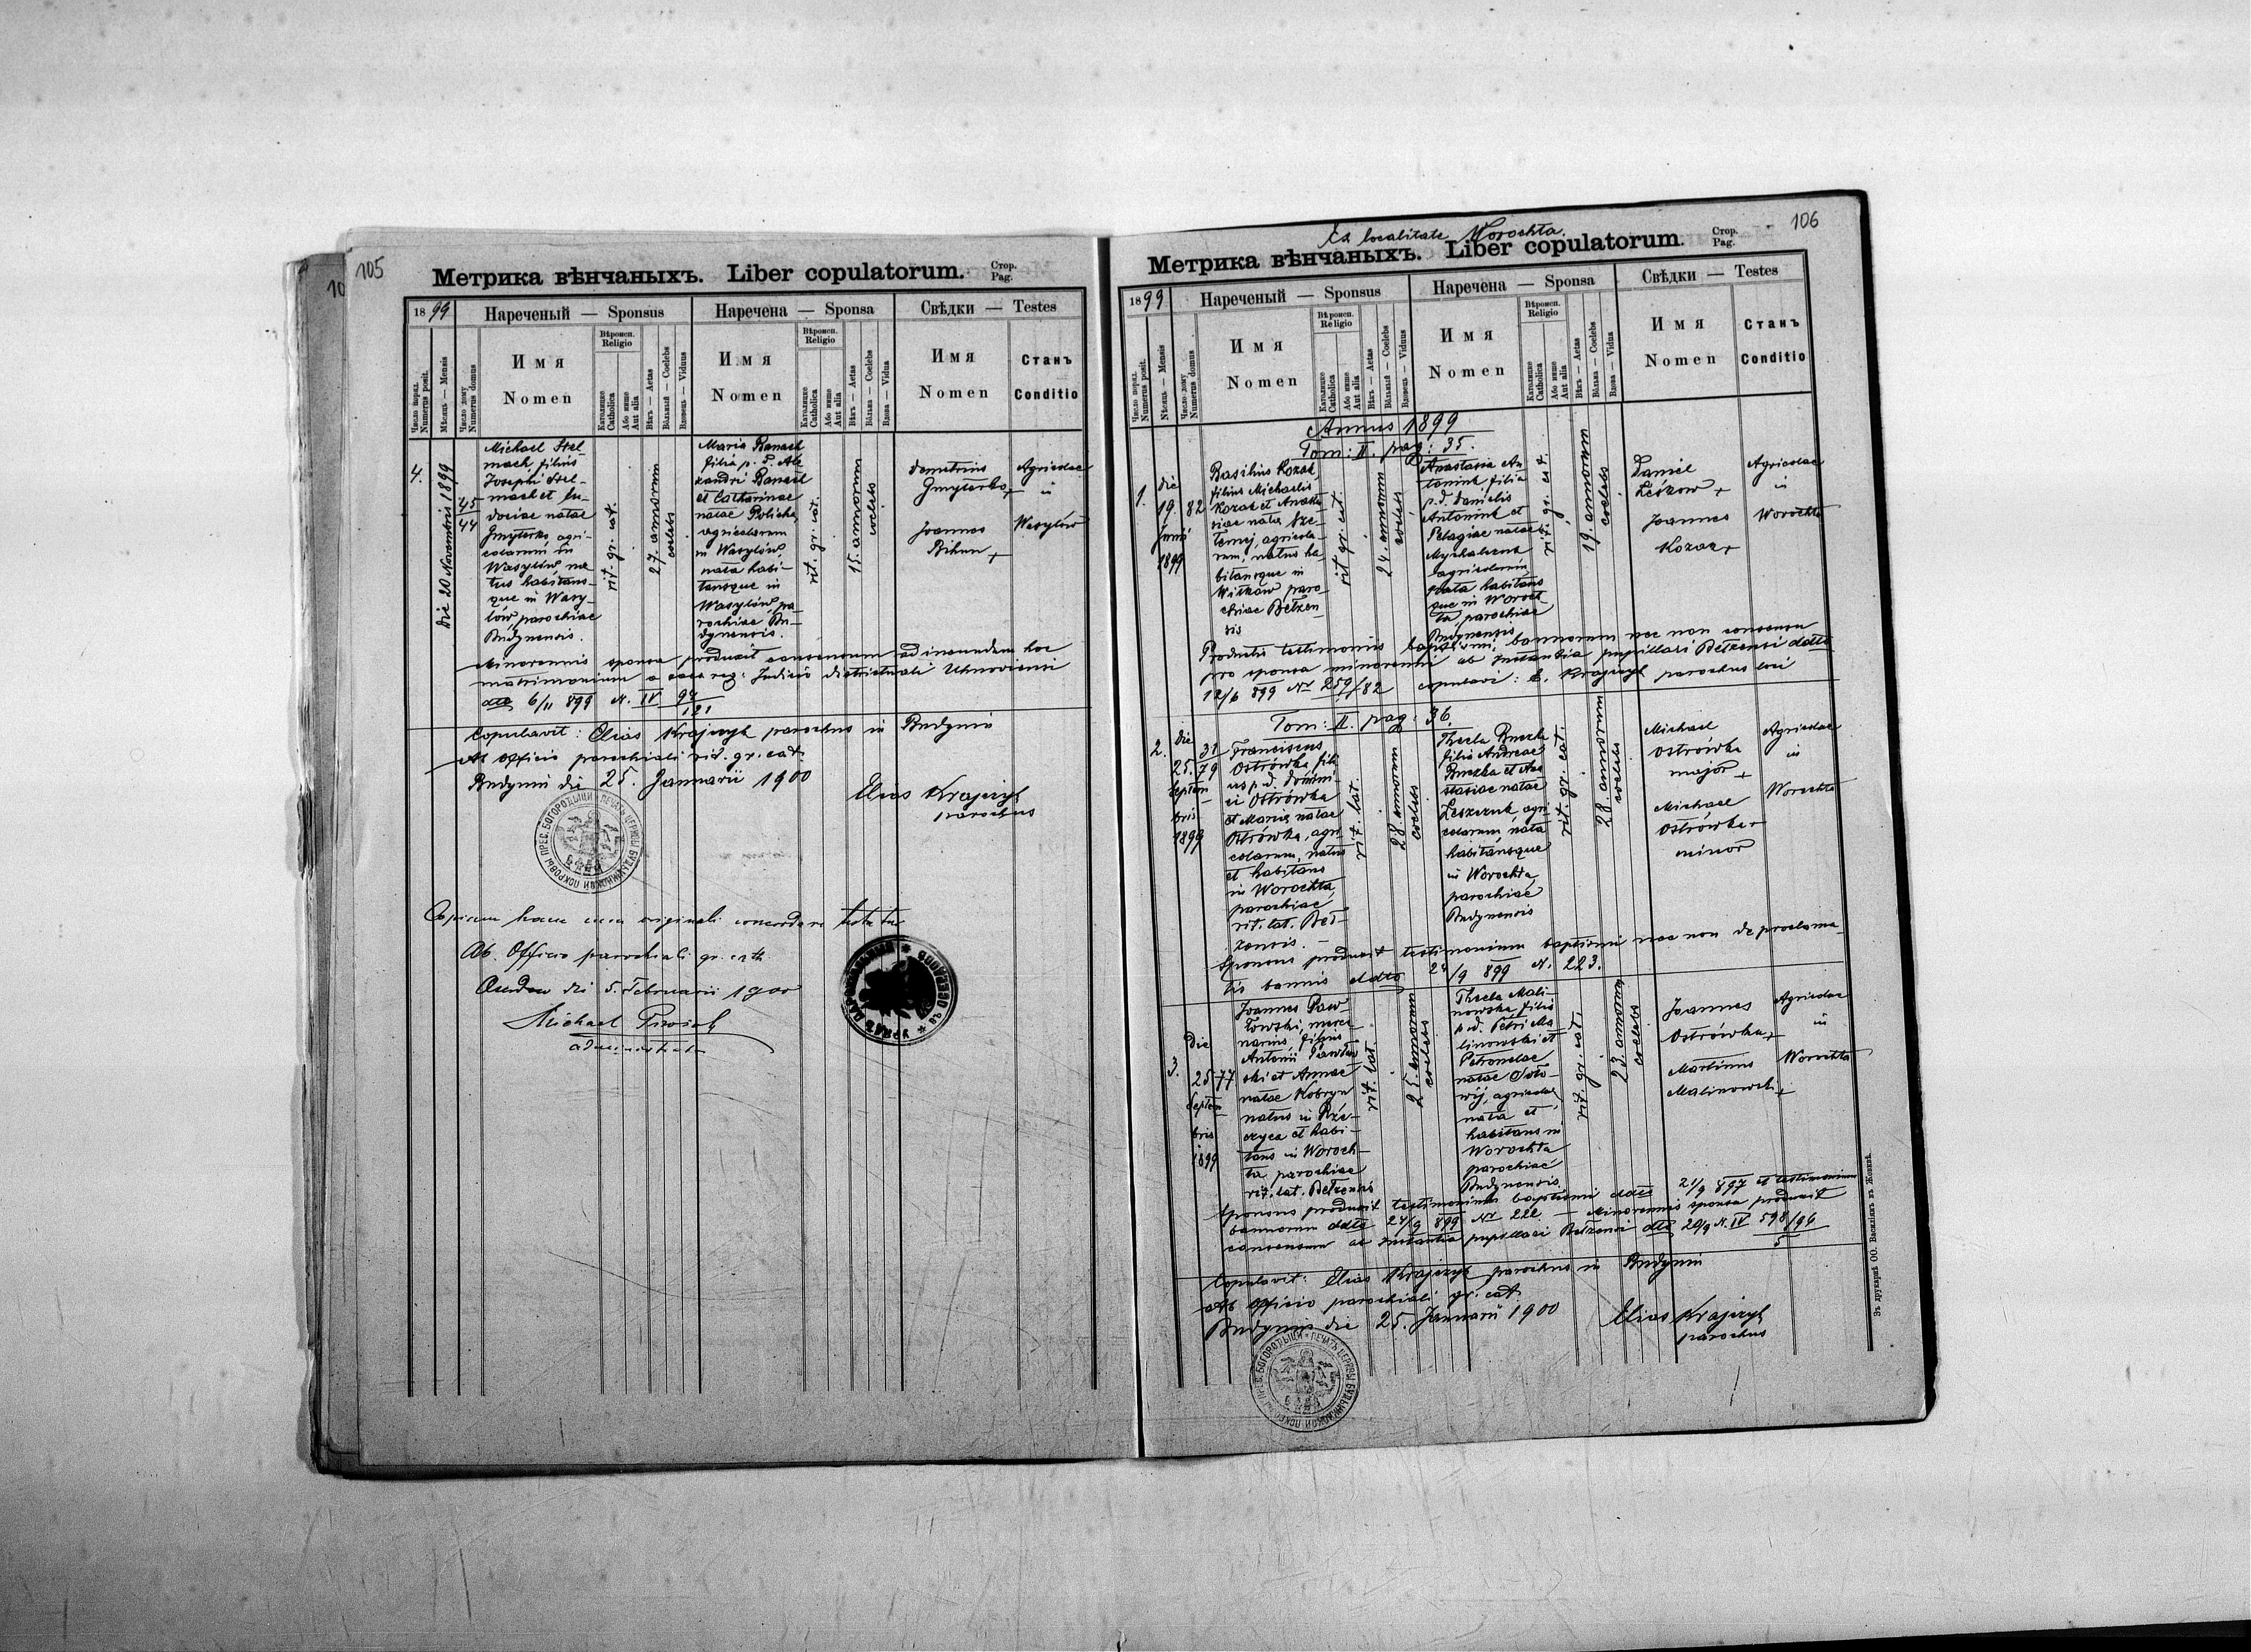 105
Метрика вѣнчаныхъ. Liber copulatorum. Стор. Pag.
1899
Нареченый — Sponsus
Наречена — Sponsa
Свѣдки — Testes
Число поряд. Numerus posit.
Мѣсяць — Mensis
Число дому Numerus domus
Имя
Nomen
Вѣроисп. Religio
Католицке Catholica
Або инше Aut alia
Вѣкъ — Aetas
Вôльный — Coelebs
Вдовець — Viduus
Имя
Nomen
Вѣроисп. Religio
Католицке Catholica
Або инше Aut alia
Вѣкъ — Aetas
Вôльна — Coelebs
Вдова — Vidua
Имя
Nomen
Станъ
Conditio
4.
Die 20 Novembris 1899
45
44
Michael Stel-
mach, filius
Josephi Stel-
mach et Eu-
dociae natae
Gmyterko, agri-
colarum in
Wasylów na-
tus habitans-
que in Wasy-
lów, parochiae
Budynensis.
rit. gr. cat.
27. annorum
coelebs
Maria Banach
filia p. d. Ale-
xandri Banach
et Catharinae
natae Policha,
agricolarum
in Wasylów
nata habi-
tansque in
Wasylów, pa-
rochiae Bu-
dynensis.
rit. gr. cat.
15. annorum
coelebs
Demetrius
Gmyterko +
Joannes
Bihun +
Agricolae
in
Wasylów
Minorennis sponsa produxit consensum ad ineundum hoc
matrimonium a caes. reg. Judicio districtuali Uhnoviensi
dto 6/11 899 N. IV 94/121
Copulavit: Elias Krajczyk parochus in Budynin
Ab officio parochiali rit. gr. cat.
Budynin die 25. Januarii 1900
Elias Krajczyk
parochus
Copiam hanc cum originali concordare testatur
Ab Officio parochiali gr. cath.
die 5. Februarii 1900
Michael
administrator
106
Ex localitate Worochta.
Метрика вѣнчаныхъ. Liber copulatorum. Стор. Pag.
1899
Нареченый — Sponsus
Наречена — Sponsa
Свѣдки — Testes
Число поряд. Numerus posit.
Мѣсяць — Mensis
Число дому Numerus domus
Имя
Nomen
Вѣроисп. Religio
Католицке Catholica
Або инше Aut alia
Вѣкъ — Aetas
Вôльный — Coelebs
Вдовець — Viduus
Имя
Nomen
Вѣроисп. Religio
Католицке Catholica
Або инше Aut alia
Вѣкъ — Aetas
Вôльна — Coelebs
Вдова — Vidua
Имя
Nomen
Станъ
Conditio
Annus 1899
Tom: II. pag: 35.
1.
die
19.
Junii
1899
82
Basilius Kozak
filius Michaelis
Kozak et Anasta-
siae nata Sze-
remj, agricola-
rum, natus ha-
bitansque in
Witków paro-
chiae Bełzen
sis
rit. gr. cat.
24. annorum
coelebs
Anastasia An-
toniuk, filia
p. d. Danielis
Antoniuk et
Pelagiae natae
Mychalczuk
agricolarum,
nata habitans
que in Woroch-
ta, parochiae
Budynensis
rit. gr. cat.
19. annorum
coelebs
Daniel
Leśkow +
Joannes
Kozak +
Agricolae
in
Worochta
Productis testimoniis baptismi, bannorum nec non consensu
pro sponsa minorenni ab Instantia pupillari Bełzensi ddto
12/6 899 Nr 259/82 copulavi: E. Krajczyk parochus loci
Tom: II. pag: 36.
2.
die
25.
Septem
bris
1899
31
79
Franciscus
Ostrówka fili
us p. d. Domini
ci Ostrówka
et Mariae natae
Ostrówka, agri-
colarum, natus
et habitans
in Worochta,
parochiae
rit. lat. Beł-
zensis. -
rit. lat.
28. annorum
coelebs
Thecla Buczka
filia Andreae
Buczka et Ana
stasiae natae
Leszczuk, agri-
colarum nata
habitansque
in Worochta,
parochiae
Budynensis
rit. gr. cat.
28. annorum
coelebs
Michael
Ostrówka
major +
Michael
Ostrówka +
minor
Agricolae
in
Worochta
Sponsus produxit testimonium baptismi nec non de proclama-
tis bannis ddto 24/9 899 N. 223.
3.
die
25
Septem
bris
1899
77
Joannes Paw-
łowski, merce
narius, filius
Antonii Pawłow
ski et Annae
natae Kobryn
natus in Rze-
czyca et habi-
tans in Woroch-
ta, parochiae
rit. lat. Bełzensis
rit. lat.
25. annorum
coelebs
Thecla Mali-
nowska, filia
p. d. Petri Ma
linowski et
Petronelae
natae Soło-
wij, agricolae,
nata et
habitans in
Worochta
parochiae
Budynensis.
rit. gr. cat.
23. annorum
coelebs
Joannes
Ostrówka +
Martinus
Malinowski +
Agricolae
in
Worochta
Sponsus produxit testimonium baptismi ddto 21/9 897 et testimonium
bannorum ddto 24/9 899 Nr 222 — Minorennis sponsa produxit
consensum ab Instantia pupillari Bełzensi dto 20/9 N. IV 598/96
5
Copulavit: Elias Krajczyk parochus in Budynin
Ab officio parochiali gr. cat.
Budynin die 25. Januarii 1900
Elias Krajczyk
parochus
Зъ друкарнѣ ОО. Василіянъ въ Жовквѣ.